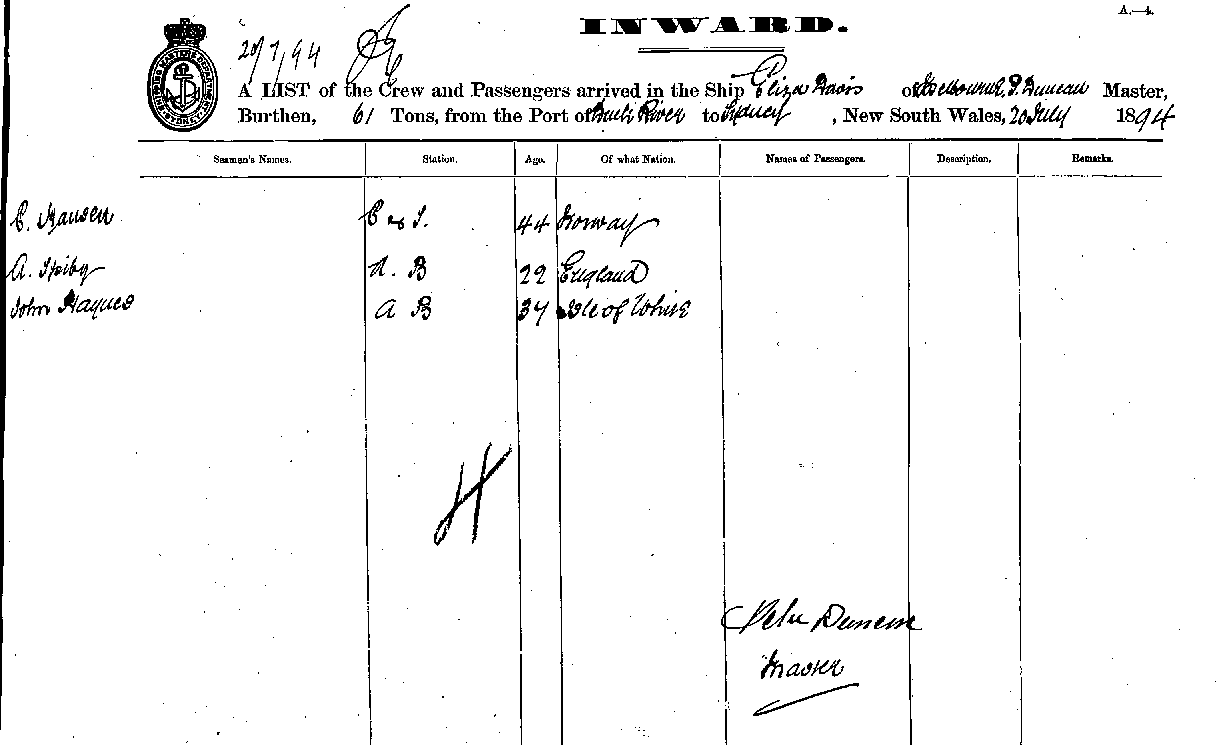 A.—4.
INWARD.
20/7/94
A LIST of the Crew and Passengers arrived in the Ship Eliza Davis of Melbourne, P. Duncan Master,
Burthen, 61 Tons, from the Port of River to Sydney, New South Wales, 20 July 1894
Seamen's Names. Station. Age. Of what Nation. Names of Passengers. Description. Remarks.
C. Hansen C & S. 44 Norway
A. Spiby A. B 22 England
John Haynes A B 37 Isle of White
Peter Duncan
Master